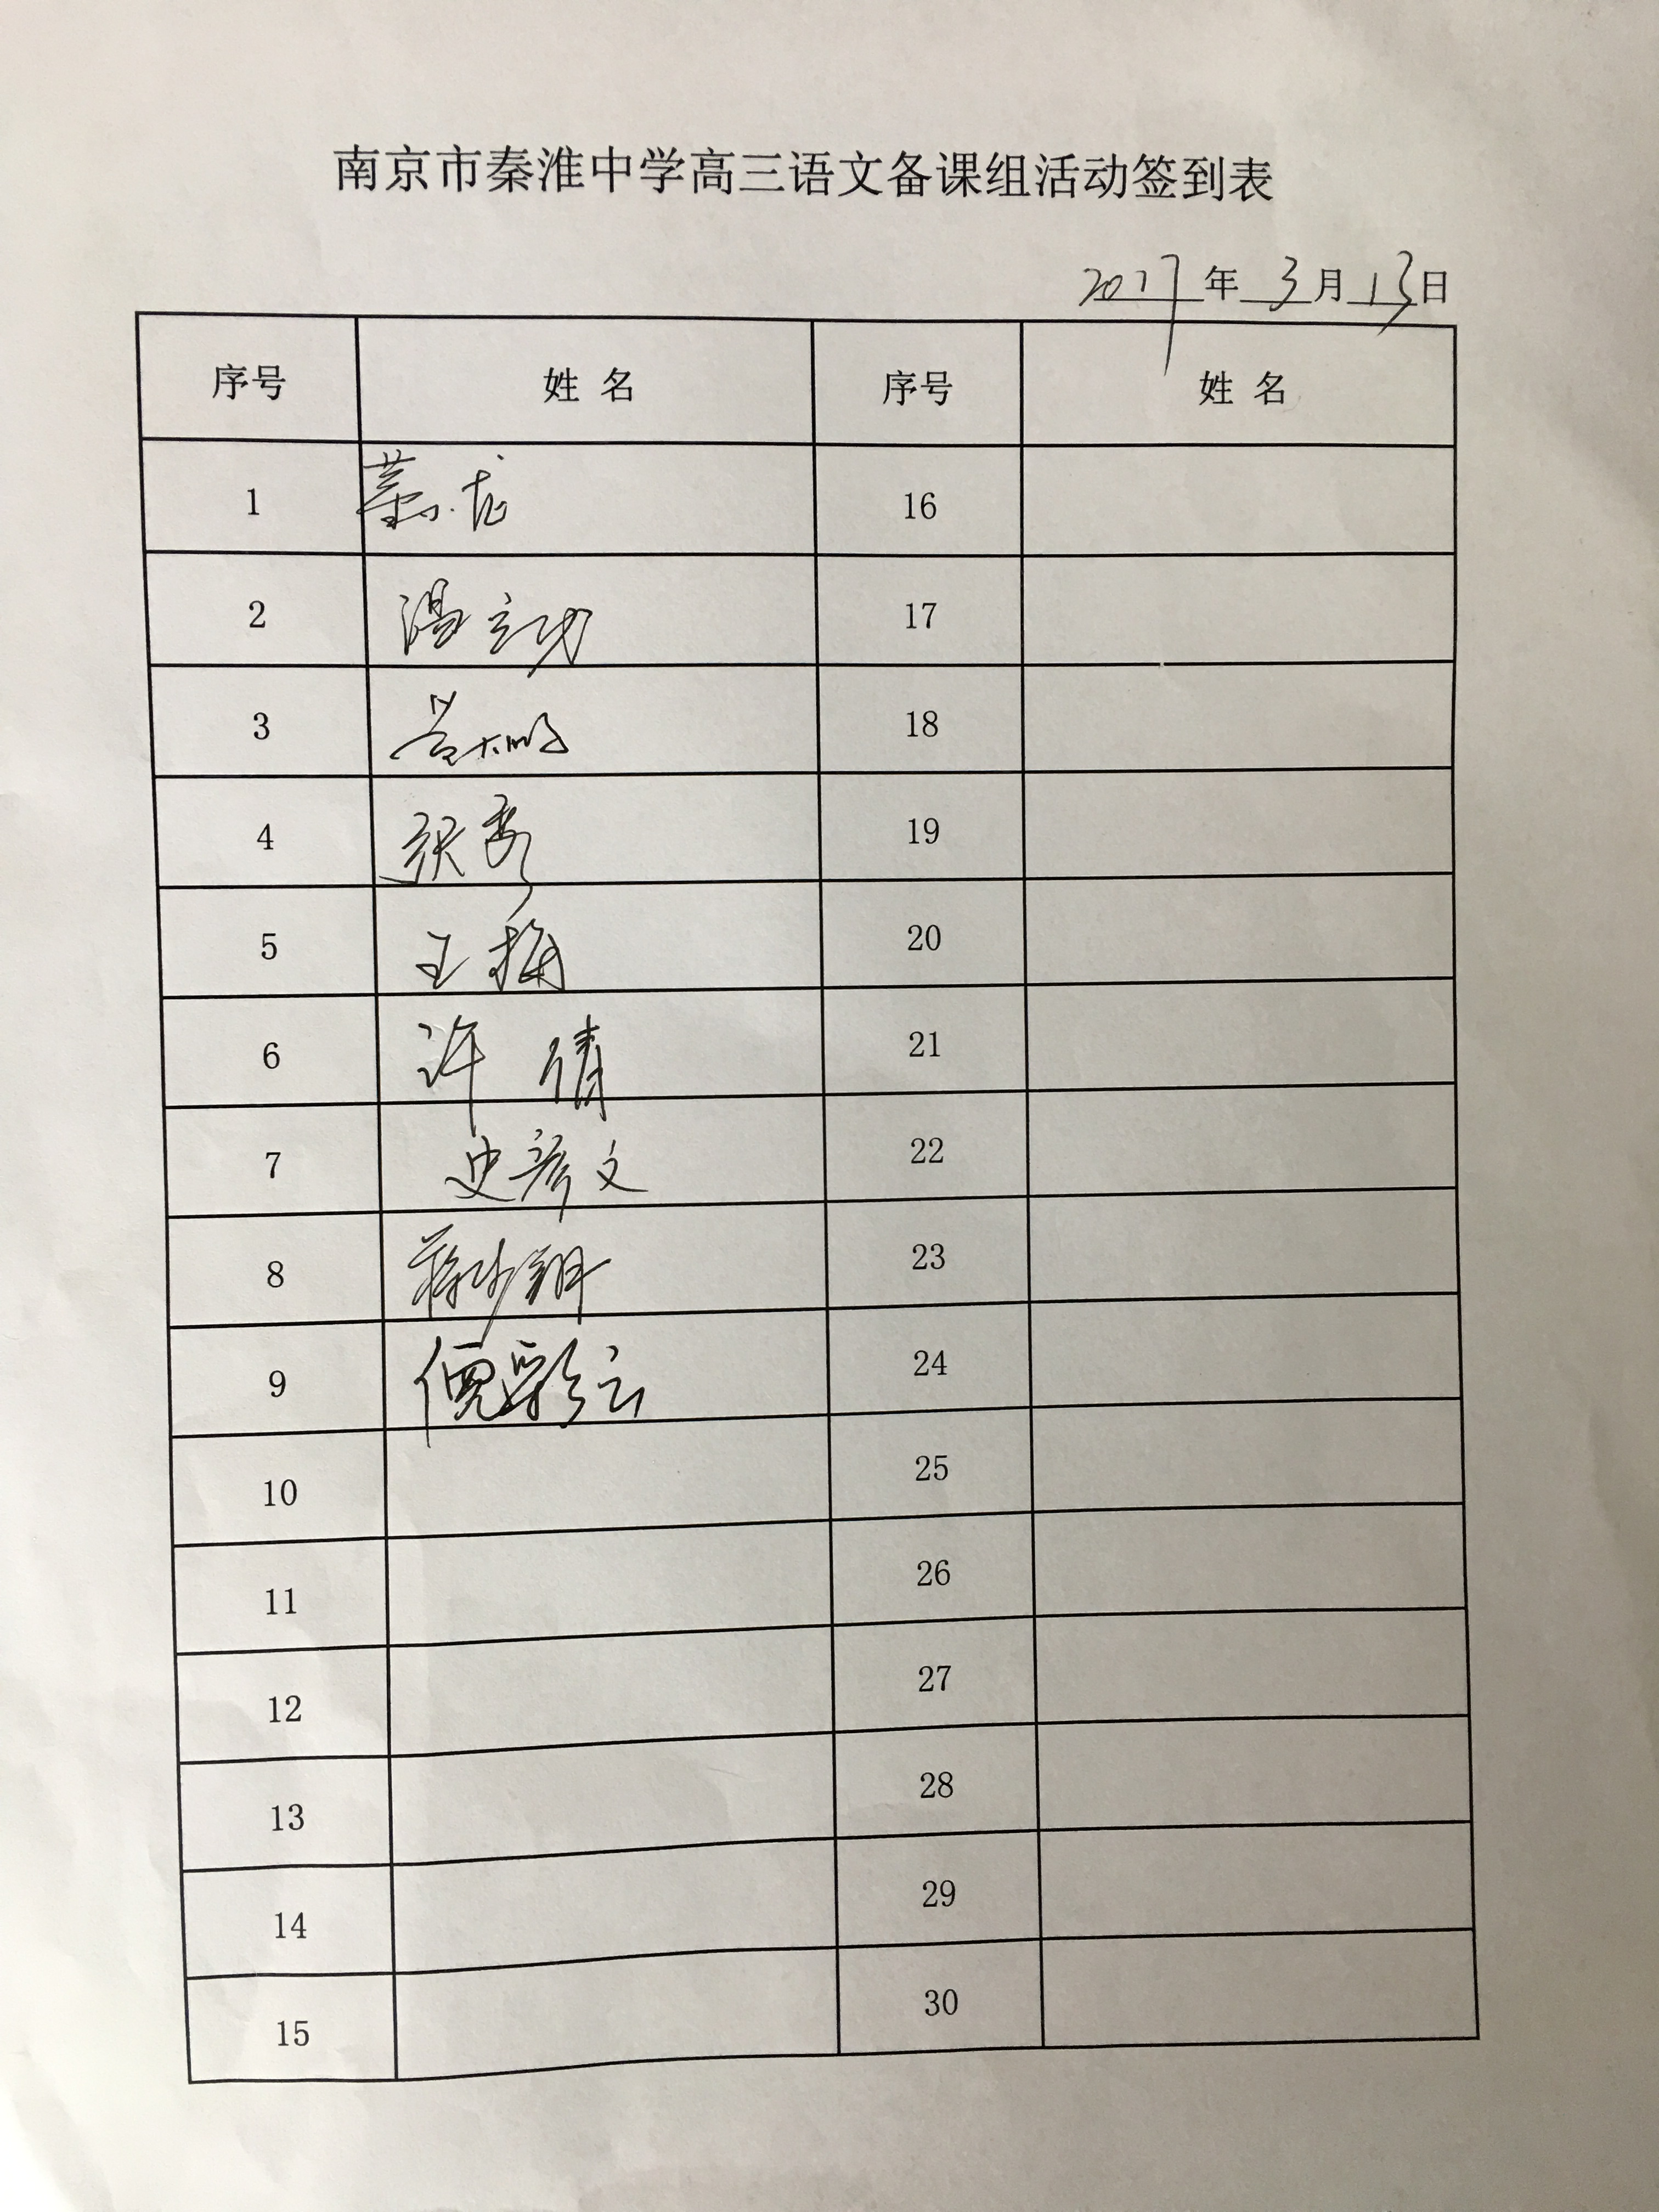 南京市秦淮中学高三语文备课组活动签到表
2017年3月13日
序号 姓 名 序号 姓 名
1 16
2 汤立功 17
3 18
4 张秀 19
5 王梅 20
6 许倩 21
7 史彦文 22
8 23
9 倪彩云 24
10 25
11 26
12 27
13 28
14 29
15 30